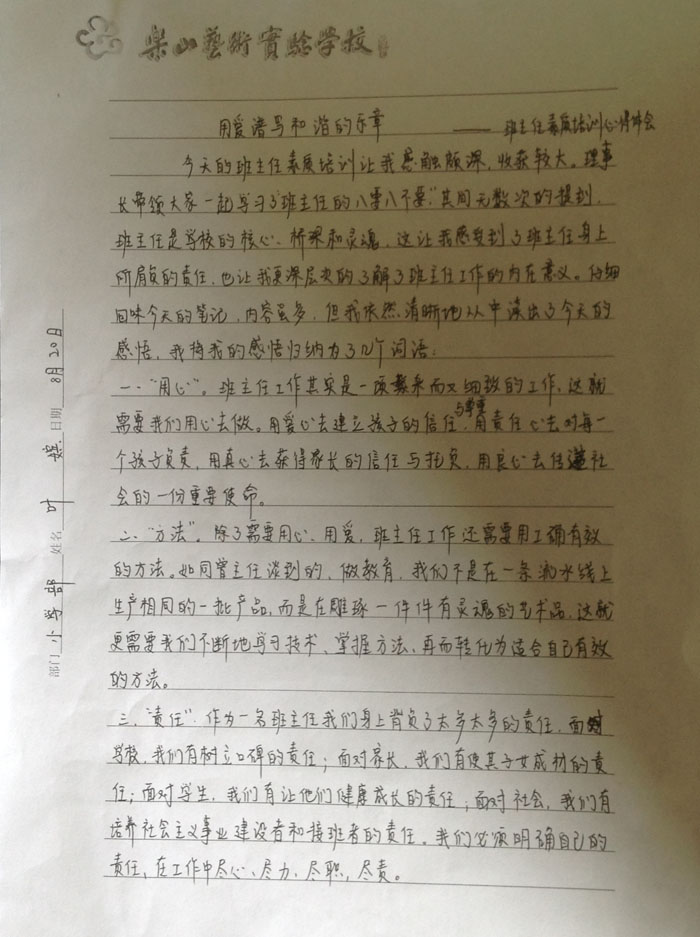 樂山藝術實驗學校
用爱谱写和谐的乐章 —— 班主任素质培训心得体会
今天的班主任素质培训让我感触颇深，收获较大。理事
长带领大家一起学习了"班主任的八要八不要"其间无数次的提到，
班主任是学校的核心、桥梁和灵魂，这让我感受到了班主任身上
所肩负的责任，也让我更深层次的了解了班主任工作的内在意义。仔细
回味今天的笔记，内容虽多，但我依然清晰地从中读出了今天的
感悟，我将我的感悟归纳为了几个词语：
一、"用心"。班主任工作其实是一项繁杂而又细致的工作，这就
需要我们用心去做。用爱心去建立孩子的信任与尊重，用责任心去对每一
个孩子负责，用真心去获得家长的信任与托负，用良心去传递社
会的一份重要使命。
二、"方法"。除了需要用心、用爱，班主任工作还需要用正确有效
的方法。如同曾主任谈到的，做教育，我们不是在一条流水线上
生产相同的一批产品，而是在雕琢一件件有灵魂的艺术品，这就
更需要我们不断地学习技术、掌握方法，再而转化为适合自己有效
的方法。
三、"责任"。作为一名班主任我们身上背负了太多太多的责任，面对
学校，我们有树立口碑的责任；面对家长，我们有使其子女成材的责
任；面对学生，我们有让他们健康成长的责任；面对社会，我们有
培养社会主义事业建设者和接班者的责任。我们必须明确自己的
责任，在工作中尽心、尽力、尽职，尽责。
部门 小学部 姓名 叶 日期 8月20日